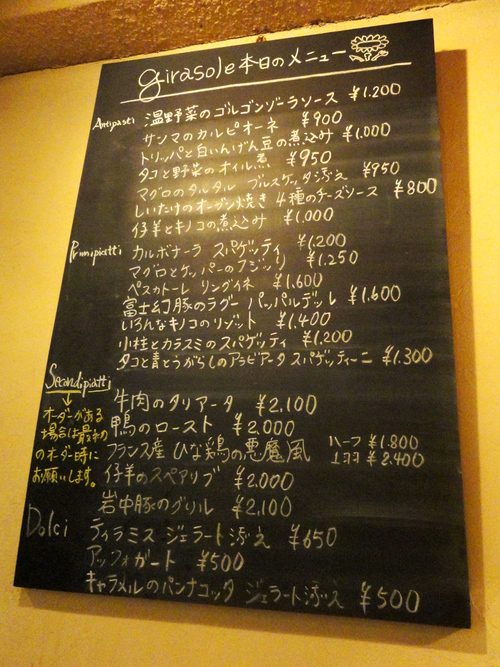 girasole 本日のメニュー
Antipasti 温野菜のゴルゴンゾーラソース ¥1.200
サンマのカルピオーネ ¥900
トリッパと白いんげん豆の煮込み ¥1.000
タコと野菜のオイル煮 ¥950
マグロのタルタル ブルスケッタ添え ¥950
しいたけのオーブン焼き 4種のチーズソース ¥800
仔羊とキノコの煮込み ¥1.000
Primipiatti カルボナーラ スパゲッティ ¥1.200
マグロとケッパーのフジッリ ¥1.250
ペスカトーレ リングイネ ¥1.600
富士幻豚のラグー パッパルデッレ ¥1.600
いろんなキノコのリゾット ¥1.400
小柱とカラスミのスパゲッティ ¥1.200
タコと青とうがらしのアラビアータ スパゲッティーニ ¥1.300
Secondipiatti
オーダーがある
場合は最初
のオーダー時に
お願いします。
牛肉のタリアータ ¥2.100
鴨のロースト ¥2.000
フランス産 ひな鶏の悪魔風 ハーフ ¥1.800
1羽 ¥2.400
仔羊のスペアリブ ¥2.000
岩中豚のグリル ¥2.100
Dolci ティラミス ジェラート添え ¥650
アッフォガート ¥500
キャラメルのパンナコッタ ジェラート添え ¥500